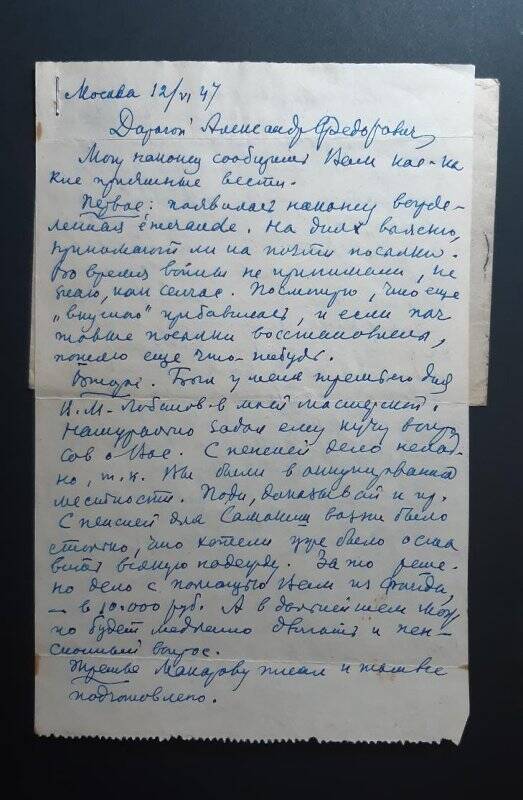 Москва 12/VI 47
Дорогой Александр Федорович,
Могу наконец сообщить Вам кое-ка
кие приятные вести.
Первое: появилась наконец вожде-
ленная émeraude. На днях выясню,
принимают ли на почте посылки.
Во время войны не принимали, не
знаю, как сейчас. Посмотрю, что еще
"вкусного" прибавилось, и если поч
товые посылки восстановлены,
пошлю еще что-нибудь.
Второе. Был у меня третьего дня
И.М. Лобанов в моей мастерской.
Натурально задал ему кучу вопро
сов о Вас. С пенсией дело нелад
но, т.к. Вы были в оккупированной
местности. Поди, доказывай и пр.
С пенсией для возни было
столько, что хотели уже было оста
вить всякую надежду. За то реше-
но дело с помощью Вам из фонда,
– в 10.000 руб. А в дальнейшем мож
но будет медленно двигать и пен-
сионный вопрос.
Третье Макарову писал и там все
подготовлено.